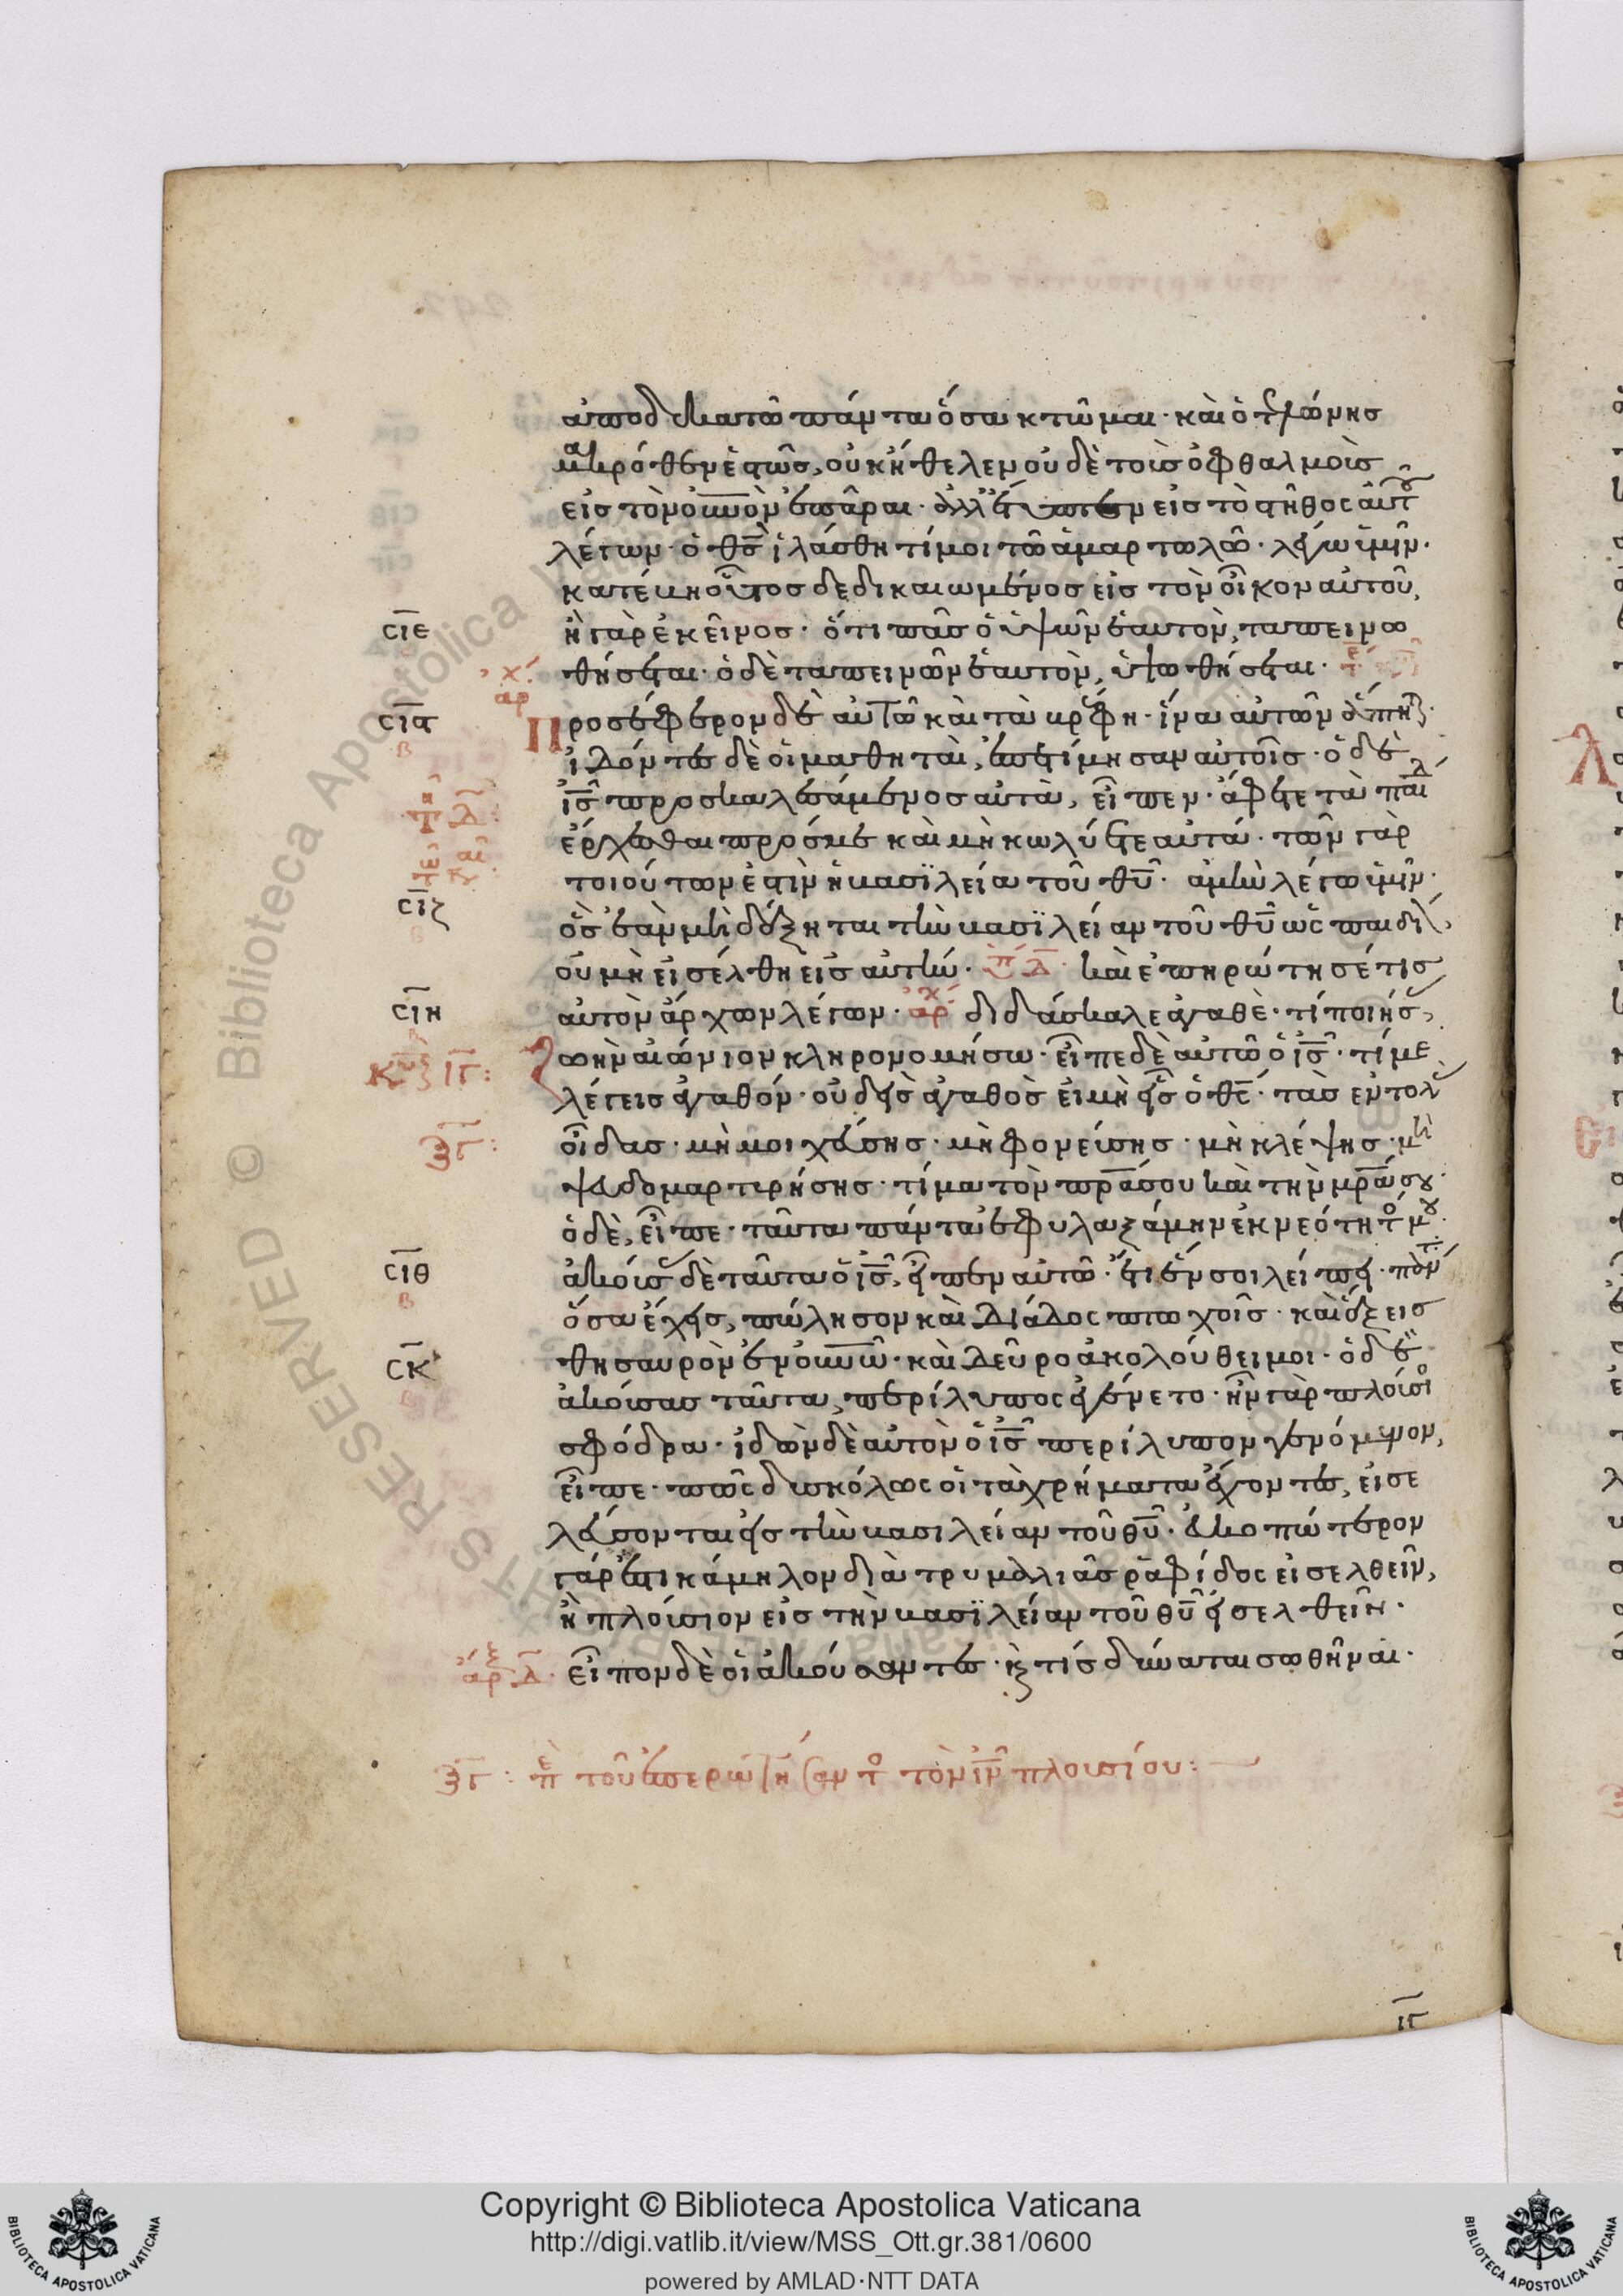 ἀποδεκατῶ πάντα ὅσα κτῶμαι· καὶ ὁ τελώνης
μακρόθεν ἑστῶς, οὐκ ἤθελεν οὐδὲ τοὺς ὀφθαλμοὺς
εἰς τὸν οὐνὸν ἐπᾶραι· ἀλλ' ἔτυπτεν εἰς τὸ στῆθος αὐτοῦ
λέγων· ὁ θς ἱλάσθητί μοι τῶ ἁμαρτωλῶ· λέγω ὑμῖν·
κατέβη οὗτος δεδικαιωμένος εἰς τὸν οἶκον αὐτοῦ,
σιε
ἢ γὰρ ἐκεῖνος· ὅτι πᾶς ὁ ὑψῶν ἑαυτὸν, ταπεινω
θήσεται· ὁ δὲ ταπεινῶν ἑαυτὸν, ὑψωθήσεται·
αρχ
σιϛ
Προσέφερον δὲ αὐτῶ καὶ τὰ βρέφη· ἵνα αὐτῶν ἅπτηται·
ἰδόντες δὲ οἱ μαθηταὶ, ἐπετίμησαν αὐτοῖς· ὁ δὲ
ις προσκαλεσάμενος αὐτὰ, εἶπεν· ἄφετε τὰ παιδία
ἔρχεσθαι πρός με καὶ μὴ κωλύετε αὐτά· τῶν γὰρ
τοιούτων ἐστὶν ἡ βασϊλεία τοῦ θυ· ἀμὴν λέγω ὑμῖν·
σιζ
ὃς ἐὰν μὴ δέξηται τὴν βασϊλείαν τοῦ θυ ὡς παιδίον,
οὐ μὴ εἰσέλθη εἰς αὐτήν· καὶ ἐπηρώτησέ τις
σιη
αὐτὸν ἄρχων λέγων· αρχ διδάσκαλε ἀγαθὲ· τί ποιήσας
ιγ:
ζωὴν αἰώνιον κληρονομήσω· εἶπε δὲ αὐτῶ ὁ ις· τί με
λέγεις ἀγαθόν· οὐδεὶς ἀγαθὸς εἰ μὴ εἷς ὁ θς· τὰς ἐντολὰς
ξγ:
οἶδας· μὴ μοιχεύσης· μὴ φονεύσης· μὴ κλέψης· μὴ
ψευδομαρτυρήσης· τίμα τὸν πρα σου καὶ τὴν μρα σου·
ὁ δὲ, εἶπε· ταῦτα πάντα ἐφυλαξάμην ἐκ νεότητός μου·
σιθ
ἀκούσας δὲ ταῦτα ὁ ις, εἶπεν αὐτῶ· ἔτι ἕν σοι λείπει· πάντα
ὅσα ἔχεις, πώλησον καὶ διάδος πτωχοῖς· καὶ ἕξεις
σκ
θησαυρὸν ἐν οὐνω· καὶ δεῦρο ἀκολούθει μοι· ὁ δὲ
ἀκούσας ταῦτα, περίλυπος ἐγένετο· ἦν γὰρ πλούσιος
σφόδρα· ἰδὼν δὲ αὐτὸν ὁ ις περίλυπον γενόμενον,
εἶπε· πῶς δυσκόλως οἱ τὰ χρήματα ἔχοντες, εἰσε
λεύσονται εἰς τὴν βασιλείαν τοῦ θυ· εὐκοπώτερον
γάρ ἐστι κάμηλον διὰ τρυμαλιᾶς ῥαφίδος εἰσελθεῖν,
ἢ πλούσιον εἰς τὴν βασϊλείαν τοῦ θυ εἰσελθεῖν·
εἶπον δὲ οἱ ἀκούσαντες· καὶ τίς δύναται σωθῆναι·
ξγ: πε τοῦ ἐπερωτήσαντος τὸν ιν πλουσίου:
ιγ
Copyright © Biblioteca Apostolica Vaticana
http://digi.vatlib.it/view/MSS_Ott.gr.381/0600
powered by AMLAD·NTT DATA
BIBLIOTECA APOSTOLICA VATICANA
BIBLIOTECA APOSTOLICA VATICANA